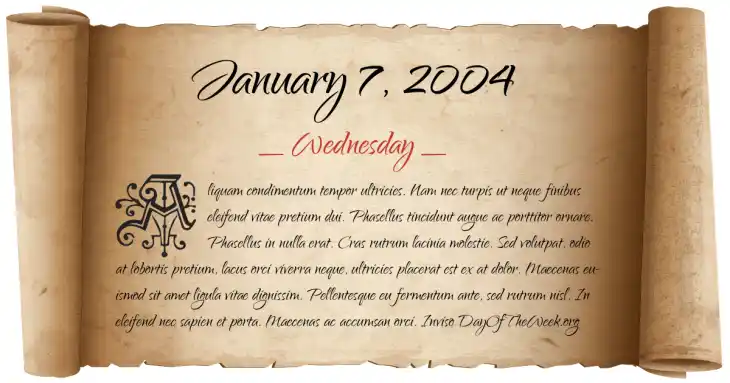 January 7, 2004
Wednesday
Aliquam condimentum tempor ultricies. Nam nec turpis ut neque finibus
eleifend vitae pretium dui. Phasellus tincidunt augue ac porttitor ornare.
Phasellus in nulla erat. Cras rutrum lacinia molestie. Sed volutpat, odio
at lobortis pretium, lacus orci viverra neque, ultricies placerat est ex at dolor. Maecenas eu-
ismod sit amet ligula vitae dignissim. Pellentesque eu fermentum ante, sed rutrum nisl. In
eleifend nec sapien et porta. Maecenas ac accumsan orci. Inviso DayOfTheWeek.org